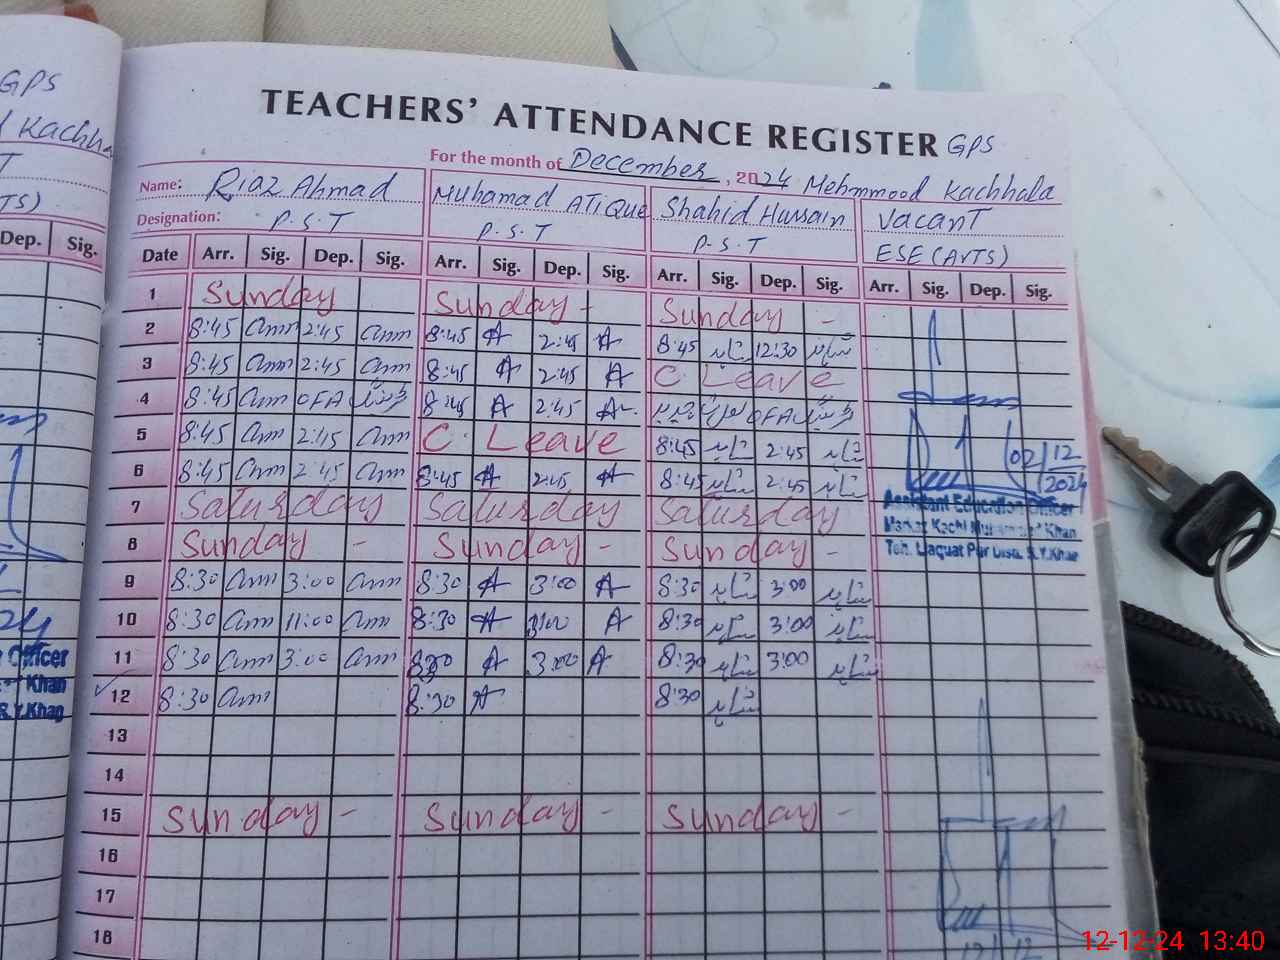 GPS
Kachha
Dep. Sig.
Officer
Khan
R.Y.Khan
TEACHERS' ATTENDANCE REGISTER GPS
For the month of December, 2024 Mehmmood Kachhala
Name: Riaz Ahmad Muhamad ATIQUE Shahid Hussain Vacant
Designation: P.S.T P.S.T P.S.T ESE (ArTS)
Date Arr. Sig. Dep. Sig. Arr. Sig. Dep. Sig. Arr. Sig. Dep. Sig. Arr. Sig. Dep. Sig.
1 Sunday Sunday - Sunday -
2 8:45 2:45 8:45 A 2:45 A 8:45 12:30
3 8:45 2:45 8:45 A 2:45 A C. Leave
4 8:45 OFA 8:45 A 2:45 A OFA
5 8:45 2:45 C. Leave 8:45 2:45
6 8:45 2:45 8:45 A 2:45 A 8:45 2:45
02/12/2024
7 Saturday Saturday Saturday
Assistant Education Officer
Markaz Kachi Muhammad Khan
8 Sunday - Sunday - Sunday -
Teh. Liaquat Pur Distt. R.Y.Khan
9 8:30 3:00 8:30 A 3:00 A 8:30 3:00
10 8:30 11:00 8:30 A 3:00 A 8:30 3:00
11 8:30 3:00 8:30 A 3:00 A 8:30 3:00
12 8:30 8:30 A 8:30
13
14
15 Sunday - Sunday - Sunday -
16
17
18
12-12-24 13:40